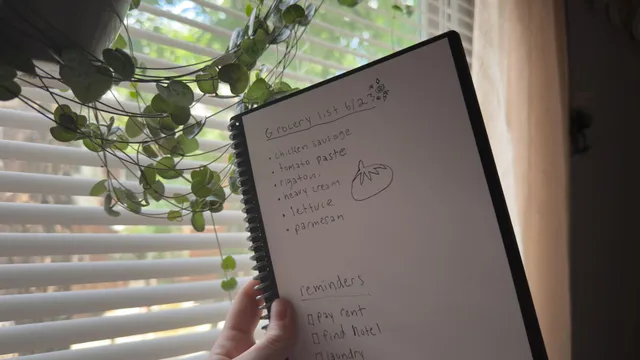 Grocery list 6/23
• chicken sausage
• tomato paste
• rigatoni
• heavy cream
• lettuce
• parmesan
reminders
□ pay rent
□ find hotel
□ laundry